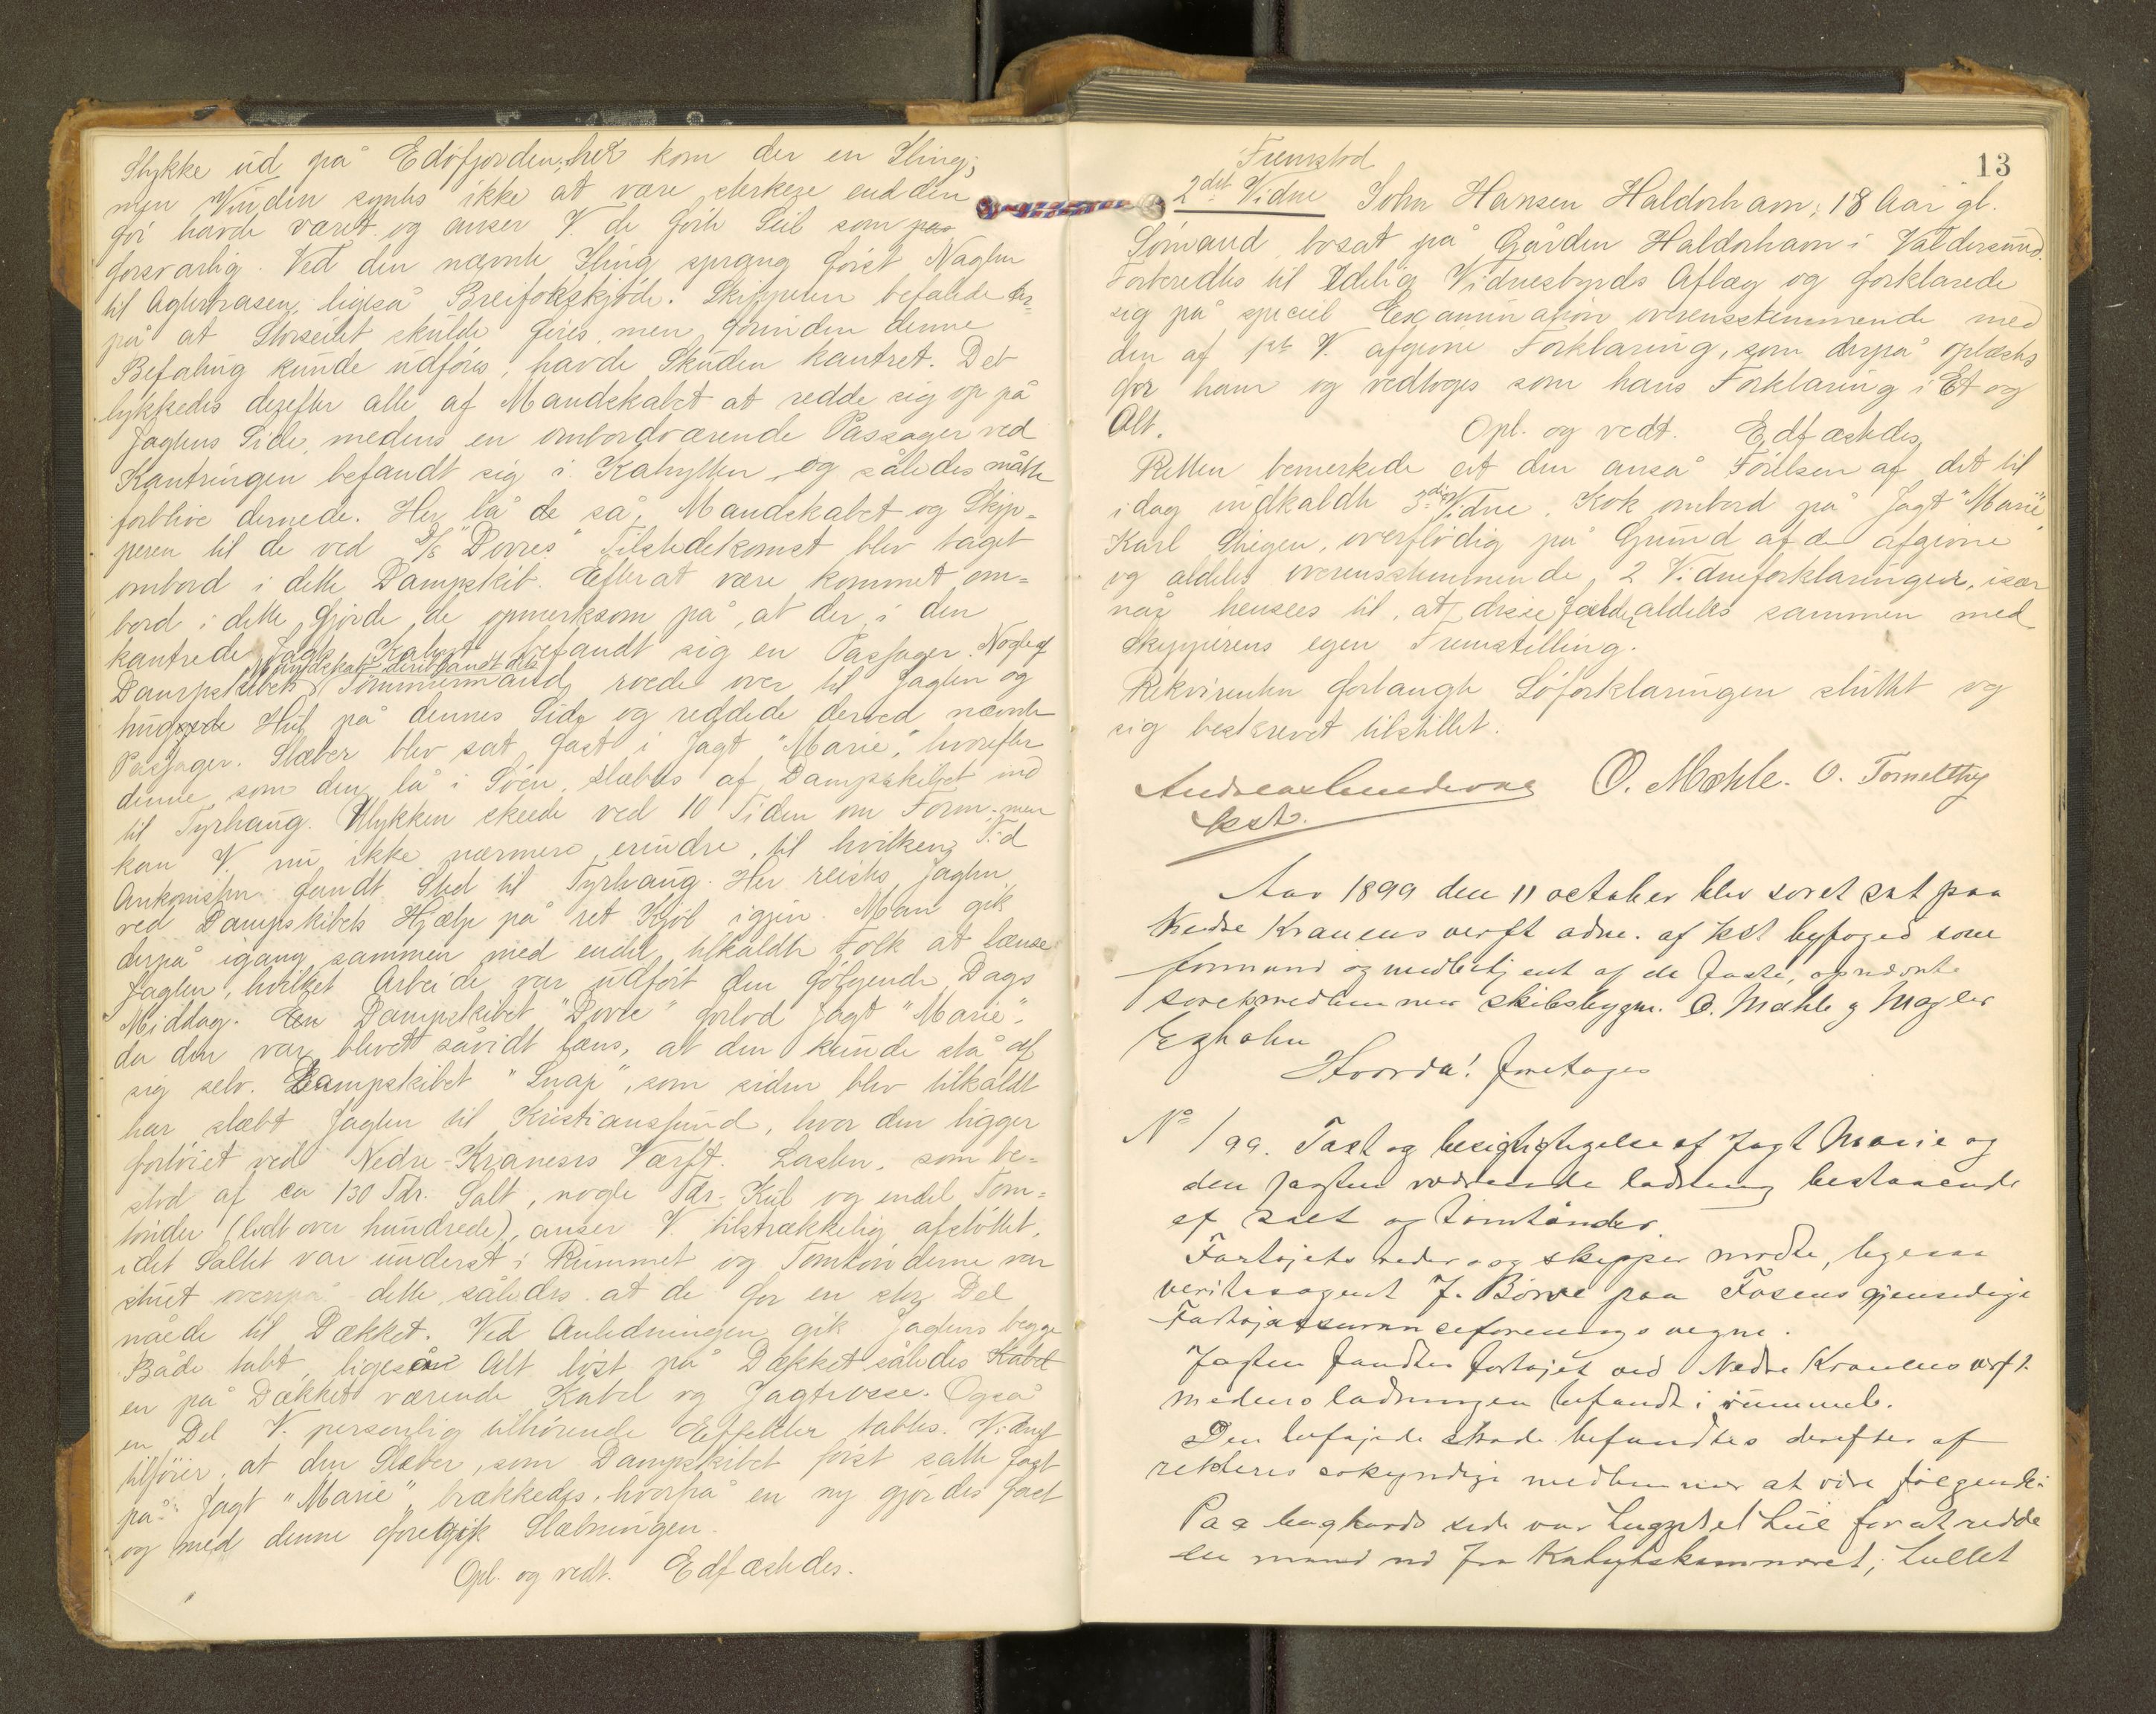 Stykke ud på Edöfjorden; her kom der en Sling;
men Vinden syntes ikke at være sterkere end den
för havde været og anser V. de förte Seil som
forsvarlig. Ved den nævnte Sling sprang först Naglen
til Agterbrasen, ligeså Breifokskjöde. Skipperen befalede der-
på at Storseilet skulde fires, men forinden denne
Befaling kunde udföres, havde Skuden kantret. Det
lykkedes derefter alle af Mandskabet at redde sig op på
Jagtens Side, medens en ombordværende Passager ved
Kantringen befandt sig i Kahytten og således måtte
forblive dernede. Her lå de så, Mandskabet og Skip-
peren til de ved D/S "Dovres" Tilstedekomst blev taget
ombord i dette Dampskib. Efterat være kommet om-
bord i dette gjorde de opmerksom på, at der i den
kantrede Jagts Kahyt befandt sig en Passager. Nogle af
Dampskibets Mandskab deriblandt dets Tömmermand roede over til Jagten og
huggede Hul på dennes Side og reddede derved nævnte
Passager. Slæber blev sat fast i Jagt "Marie", hvorefter
denne som den lå i Söen, slæbtes af Dampskibet ind
til Tyrhaug. Ulykken skede ved 10 Tiden om Form. men
kan V. nu ikke nærmere erindre, til hvilken Tid
Ankomsten fandt Sted til Tyrhaug. Her reistes Jagten
ved Dampskibets Hjælp på ret Kjöl igjen. Man gik
derpå igang sammen med endel tilkaldte Folk at lænse
Jagten, hvilket Arbeide var udfört den fölgende Dags
Middag. Dampskibet "Dovre" forlod Jagt "Marie",
da den var blevet såvidt læns, at den kunde stå af
sig selv. Dampskibet "Snap", som siden blev tilkaldt
har slæbt Jagten til Kristianssund, hvor den ligger
fortöiet ved Nedre-Kranens Værft. Lasten, som be-
stod af ca 130 Tdr. Salt, nogle Tdr. Kul og endel Tom-
tönder (lidt over hundrede), anser V. tilstrækkelig afstöttet,
idet Saltet var underst i Rummet og Tomtönderne var
stuet ovenpå dette, således at de for en stor Del
nåede til Dækket. Ved Anledningen gik Jagtens begge
Både tabt, ligeså Alt löst på Dækket således Kabel
en på Dækket værende Kabel og Jagttrosse. Også
en Del V. personlig tilhörende Effekter tabtes. Vidnet
tilföier, at den Slæber, som Dampskibet först satte fast
på Jagt "Marie", brækkedes, hvorpå en ny gjordes fast
og med denne foregik Slæbningen.
Opl. og vedt. Edfæstedes.
13
Fremstod
2det Vidne John Hansen Haldorhavn, 18 Aar gl.
Sömand, bosat på Gården Haldorhavn i Valdersund.
Forberedtes til Edelig Vidnesbyrds Aflæg og forklarede
sig på speciel Examination overensstemmende med
den af 1ste V. afgivne Forklaring, som derpå oplæstes
for ham og vedtoges som hans Forklaring i Et og
Alt. Opl. og vedt. Edfæstedes.
Retten bemerkede at den anså Förelsen af det til
idag indkaldte 3die Vidne, Kok ombord på Jagt "Marie",
Karl Stigen, overflödig på Grund af de afgivne
og aldeles overensstemmende 2 Vidneforklaringer, især
når hensees til, at disse falde aldeles sammen med
Skipperens egen Fremstilling.
Rekvirenten forlangte Söforklaringen sluttet og
sig beskrevet tilstillet.
O. Mæhle. O. Tometthy
kst.
Aar 1899 den 11 october blev soret sat paa
Nedre Kranens verft adm. af kst byfoged som
formand og medbetjent af de faste, opnævnte
soretsmedlemmer skibsbygm. O. Mæhle og Magler
Egholm
Hvorda! foretoges
No 1/99. Taxt og besigtigtigelse af Jagt Marie og
den Jagten værende ladning bestaaende
af salt og tomtönder
Fartøjets reder og skipper mødte, ligesaa
veritasagent J. Börve paa Fosens gjensidige
Fartøjassuranceforenings vegne.
Jagten fandtes fortøjet ved Nedre Kranens verft
medens ladningen befandt i rummet.
Den tilføjede skade befandtes derefter af
rettens sokyndige medlemmer at være følgende:
Paa bagbords side var hugget et hul for at redde
en mand ud fra Kahytskammeret; hullet